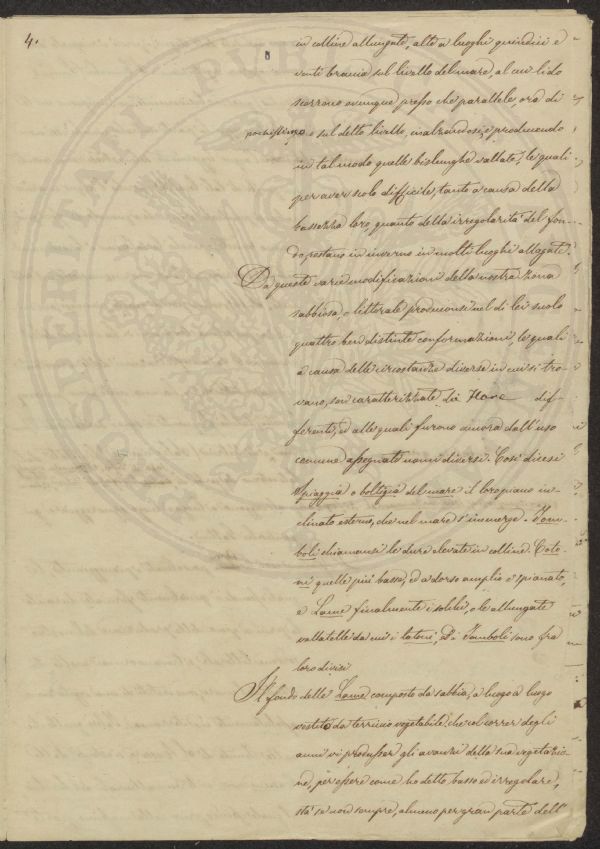 4.
in colline allungate, alte a luoghi quindici e
venti braccia sul livello del mare, al cui lido
scorrono ovunque presso che parallele, ora di
pochissimo o sul detto livello, inalzandosi, e producendo
in tal modo quelle bislunghe vallate, le quali
per aver scolo difficile, tanto a causa della
bassezza loro, quanto della irregolarità del fon-
do, restano in inverno in molti luoghi allagate.
Da queste varie modificazioni della nostra zona
sabbiosa, o littorale produconsi nel di lei suolo
quattro ben distinte conformazioni, le quali
a causa delle circostanze diverse in cui si tro-
vano, son caratterizzate da Flore dif-
ferenti, ed alle quali furono ancora dall'uso
comune assegnati nomi diversi. Così dicesi
Spiaggia o battigia del mare il loro piano in-
clinato esterno, che nel mare s'immerge. Tom-
boli chiamansi le dune elevate in colline. Coto-
ni quelle più basse, ed a dorso amplio e spianato,
e Lame finalmente i solchi, o le allungate
vallatelle da cui i Cotoni, e i Tomboli sono fra
loro divisi
Il fondo delle Lame composto da sabbia, a luogo a luogo
vestito da terriccio vegetabile, che col correr degli
anni vi produsser gli avanzi della sua vegetazio-
ne, per essere come ho detto basso ed irregolare,
stà se non sempre, almeno per gran parte dell'